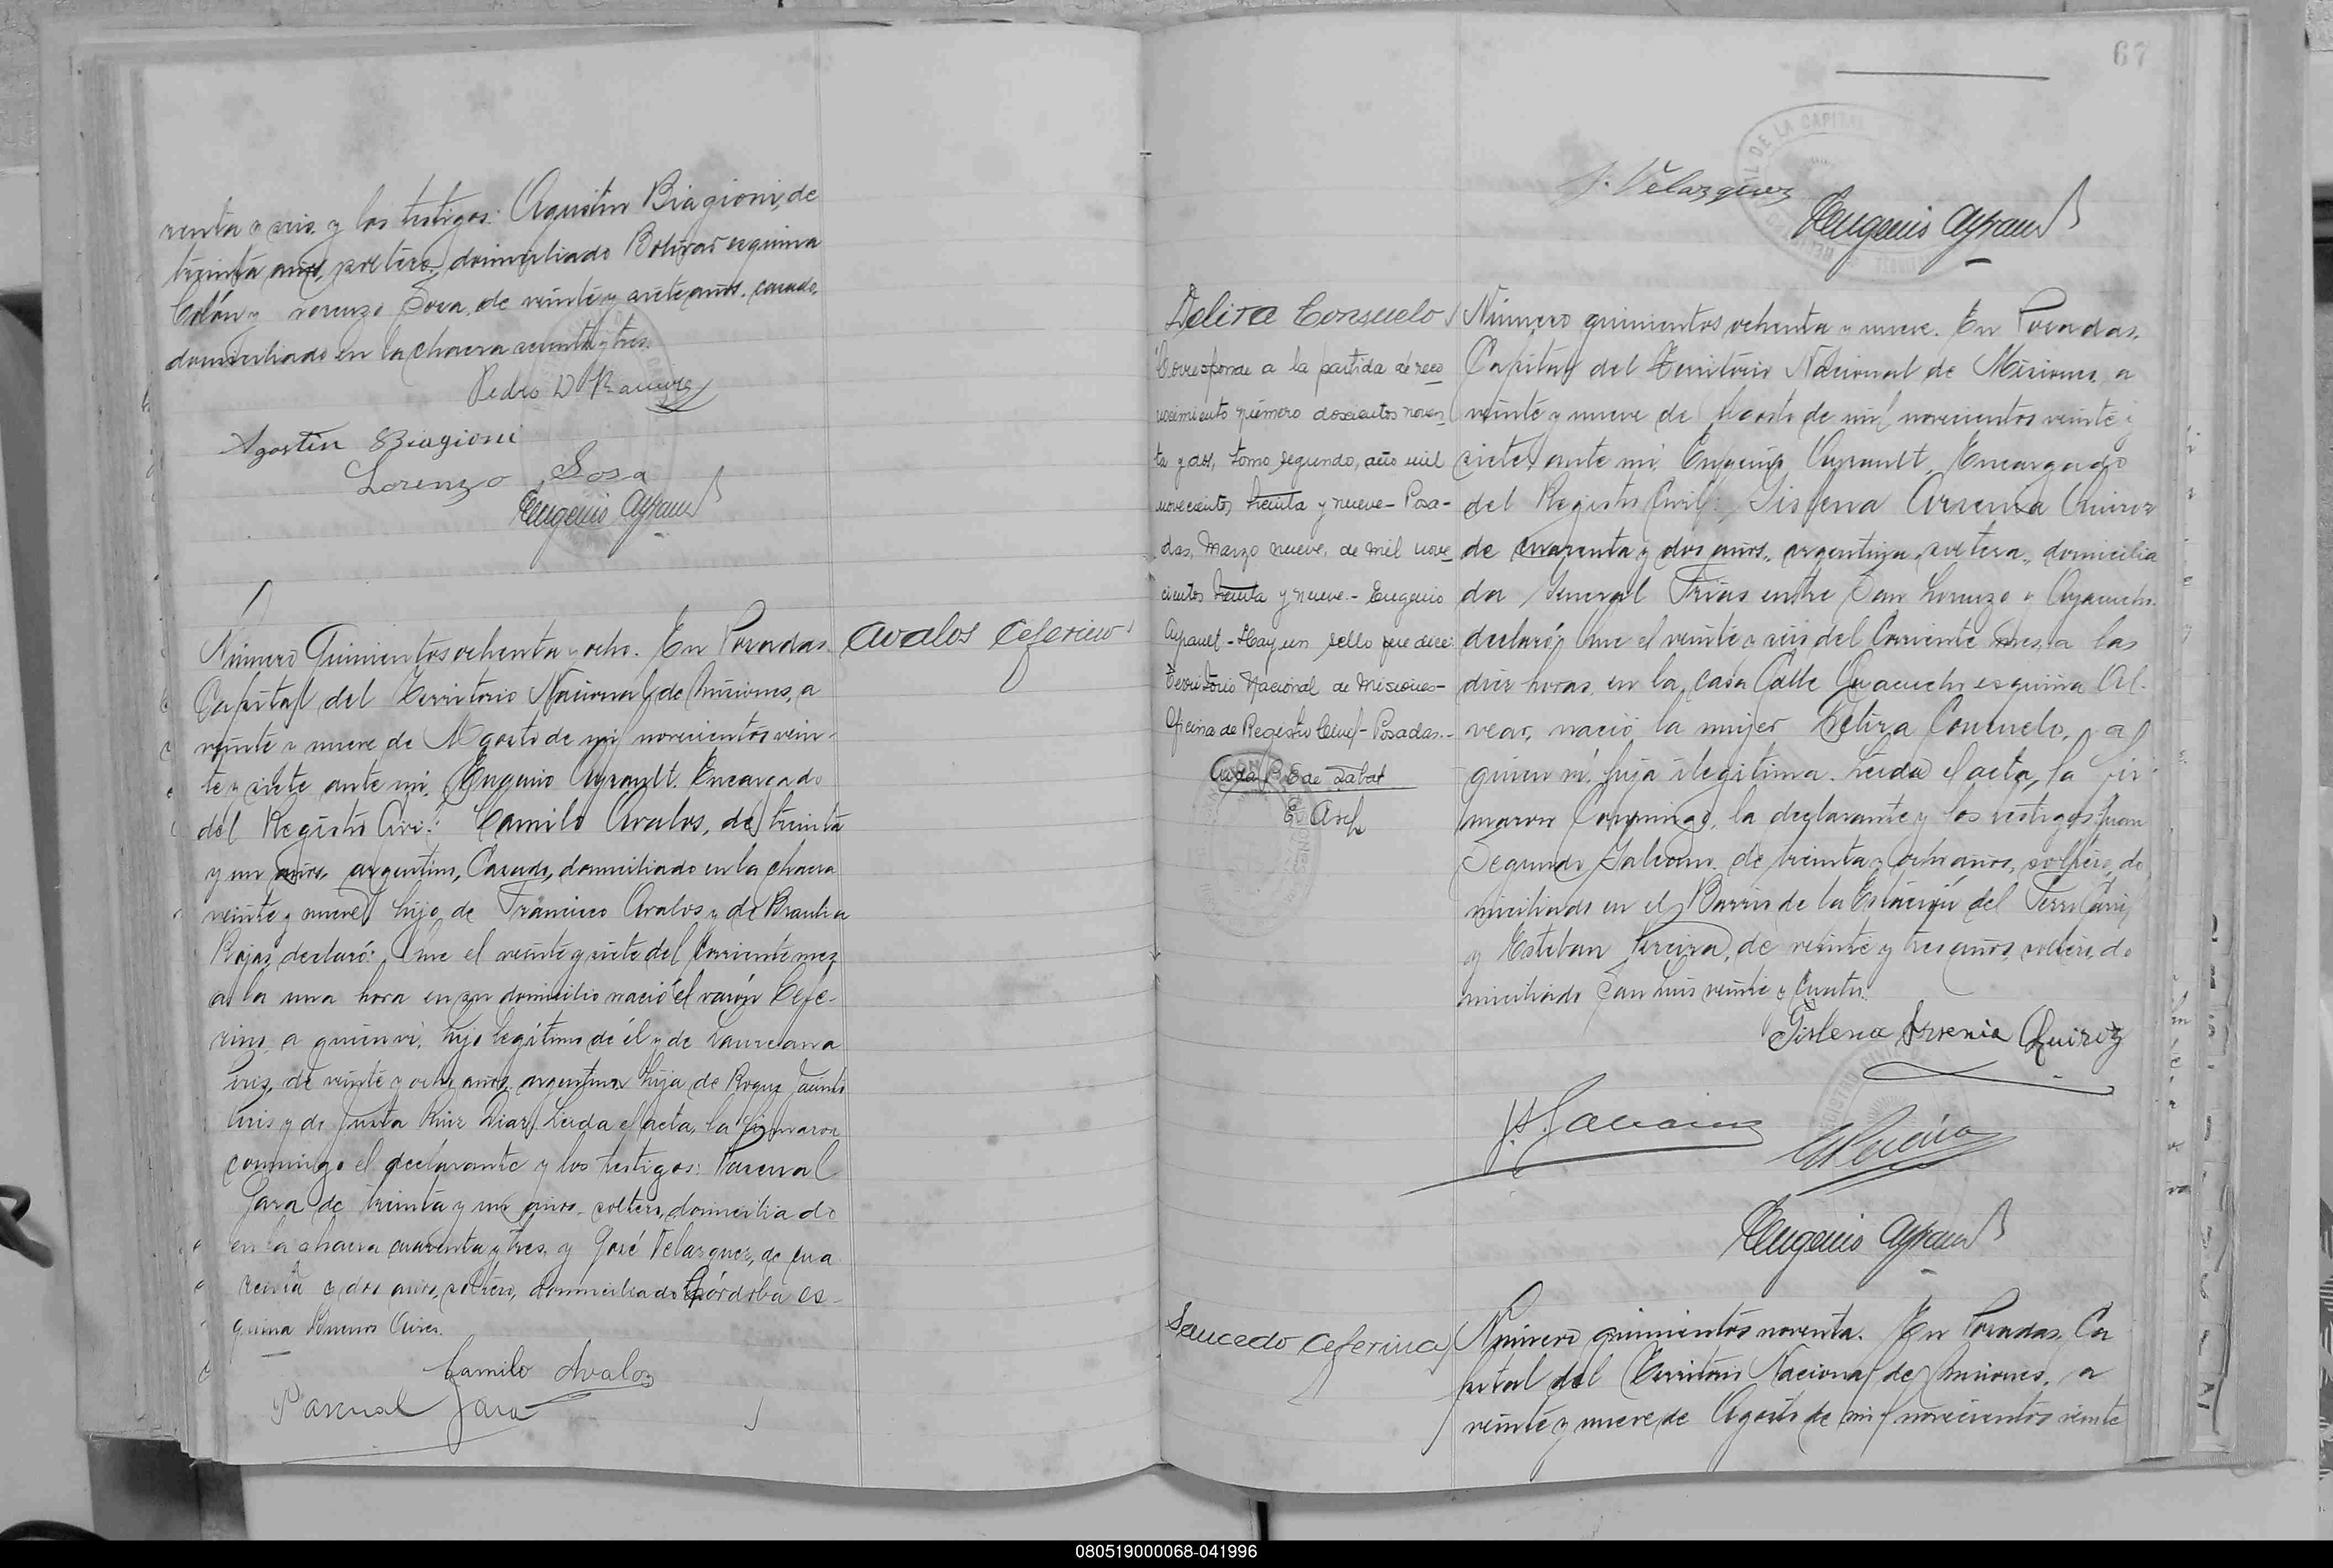 renta y seis. y los testigos: Agustin Biagioni, de
treinta años, soltero, domiciliado Bolivar esquina
Colón y Lorenzo Sosa, de veinte y siete años. casado,
domiciliado en la chacra setenta y tres.
Pedro D. Ramirez
Agostin Biagioni
Lorenzo Sosa
Eugenio Ayrault
Número Quinientos ochenta y ocho. En Posadas
Avalos Ceferino
Capital del Territorio Nacional de Misiones, a
veinte y nueve de Agosto de mil novecientos vein-
te y siete ante mi, Eugenio Ayrault. Encargado
del Registro Civil: Camilo Avalos, de treinta
y un años, argentino, Casado, domiciliado en la chacra
veinte y nueve, hijo de Francisco Avalos y de Braulia
Rojas, declaró: Que el veinte y siete del corriente mes
a la una hora en su domicilio nació el varón Cefe-
rino, a quien vi, hijo legítimo de él y de Laureana
de veinte y ocho años, argentina hija de Roque Jacinto
y de Justa Ruiz Diaz. Leida el acta, la firmaron
conmigo el declarante y los testigos: Pascual
Jara de treinta y un años, soltero, domiciliado
en la chacra cuarenta y tres, y José Velazquez, de cua
renta y dos años, soltero, domiciliado Córdoba es-
quina Buenos Aires.
Camilo Avalos
Pascual Jara
67
J. Velazquez
Eugenio Ayrault
Delira Consuelo
Corresponde a la partida de reco
nocimiento número doscientos noven
ta y dos, tomo segundo, año mil
novecientos treinta y nueve - Posa-
das, Marzo nueve, de mil nove
cientos treinta y nueve.- Eugenio
Ayrault - Hay un sello que dice:
Territorio Nacional de Misiones-
Oficina de Registro Civil - Posadas.-
E. de Sabat
Número quinientos ochenta y nueve. En Posadas.
Capital del Territorio Nacional de Misiones, a
veinte y nueve de Agosto de mil novecientos veinte y
siete, ante mi, Eugenio Ayrault, Encargado
del Registro Civil: Gislena Arsenia Quiroz
de cuarenta y dos años, argentina, soltera, domicilia
da General Frias entre San Lorenzo y Ayacucho.
declaró: Que el veinte y seis del Corriente mes, a las
diez horas, en la casa Calle Ayacucho esquina Al-
vear, nació la mujer Delira Consuelo, a
quien vi, hija ilegitima. Leida el acta, la fir
maron Conmigo, la declarante y los testigos: Juan
Segundo Galeano, de treinta y ocho años, soltero, do
miciliado en el Barrio de la Estación del Ferro Carril
y Esteban Pereira, de veinte y tres años, soltero, do
miciliado San Luis veinte y Cuatro.
Gislena Arsenia Quiroz
J. S. Galeano
Eugenio Ayrault
Saucedo Ceferina
Número quinientos noventa. En Posadas, Ca
pital del Territorio Nacional de Misiones, a
veinte y nueve de Agosto de mil novecientos veinte
080519000068-041996